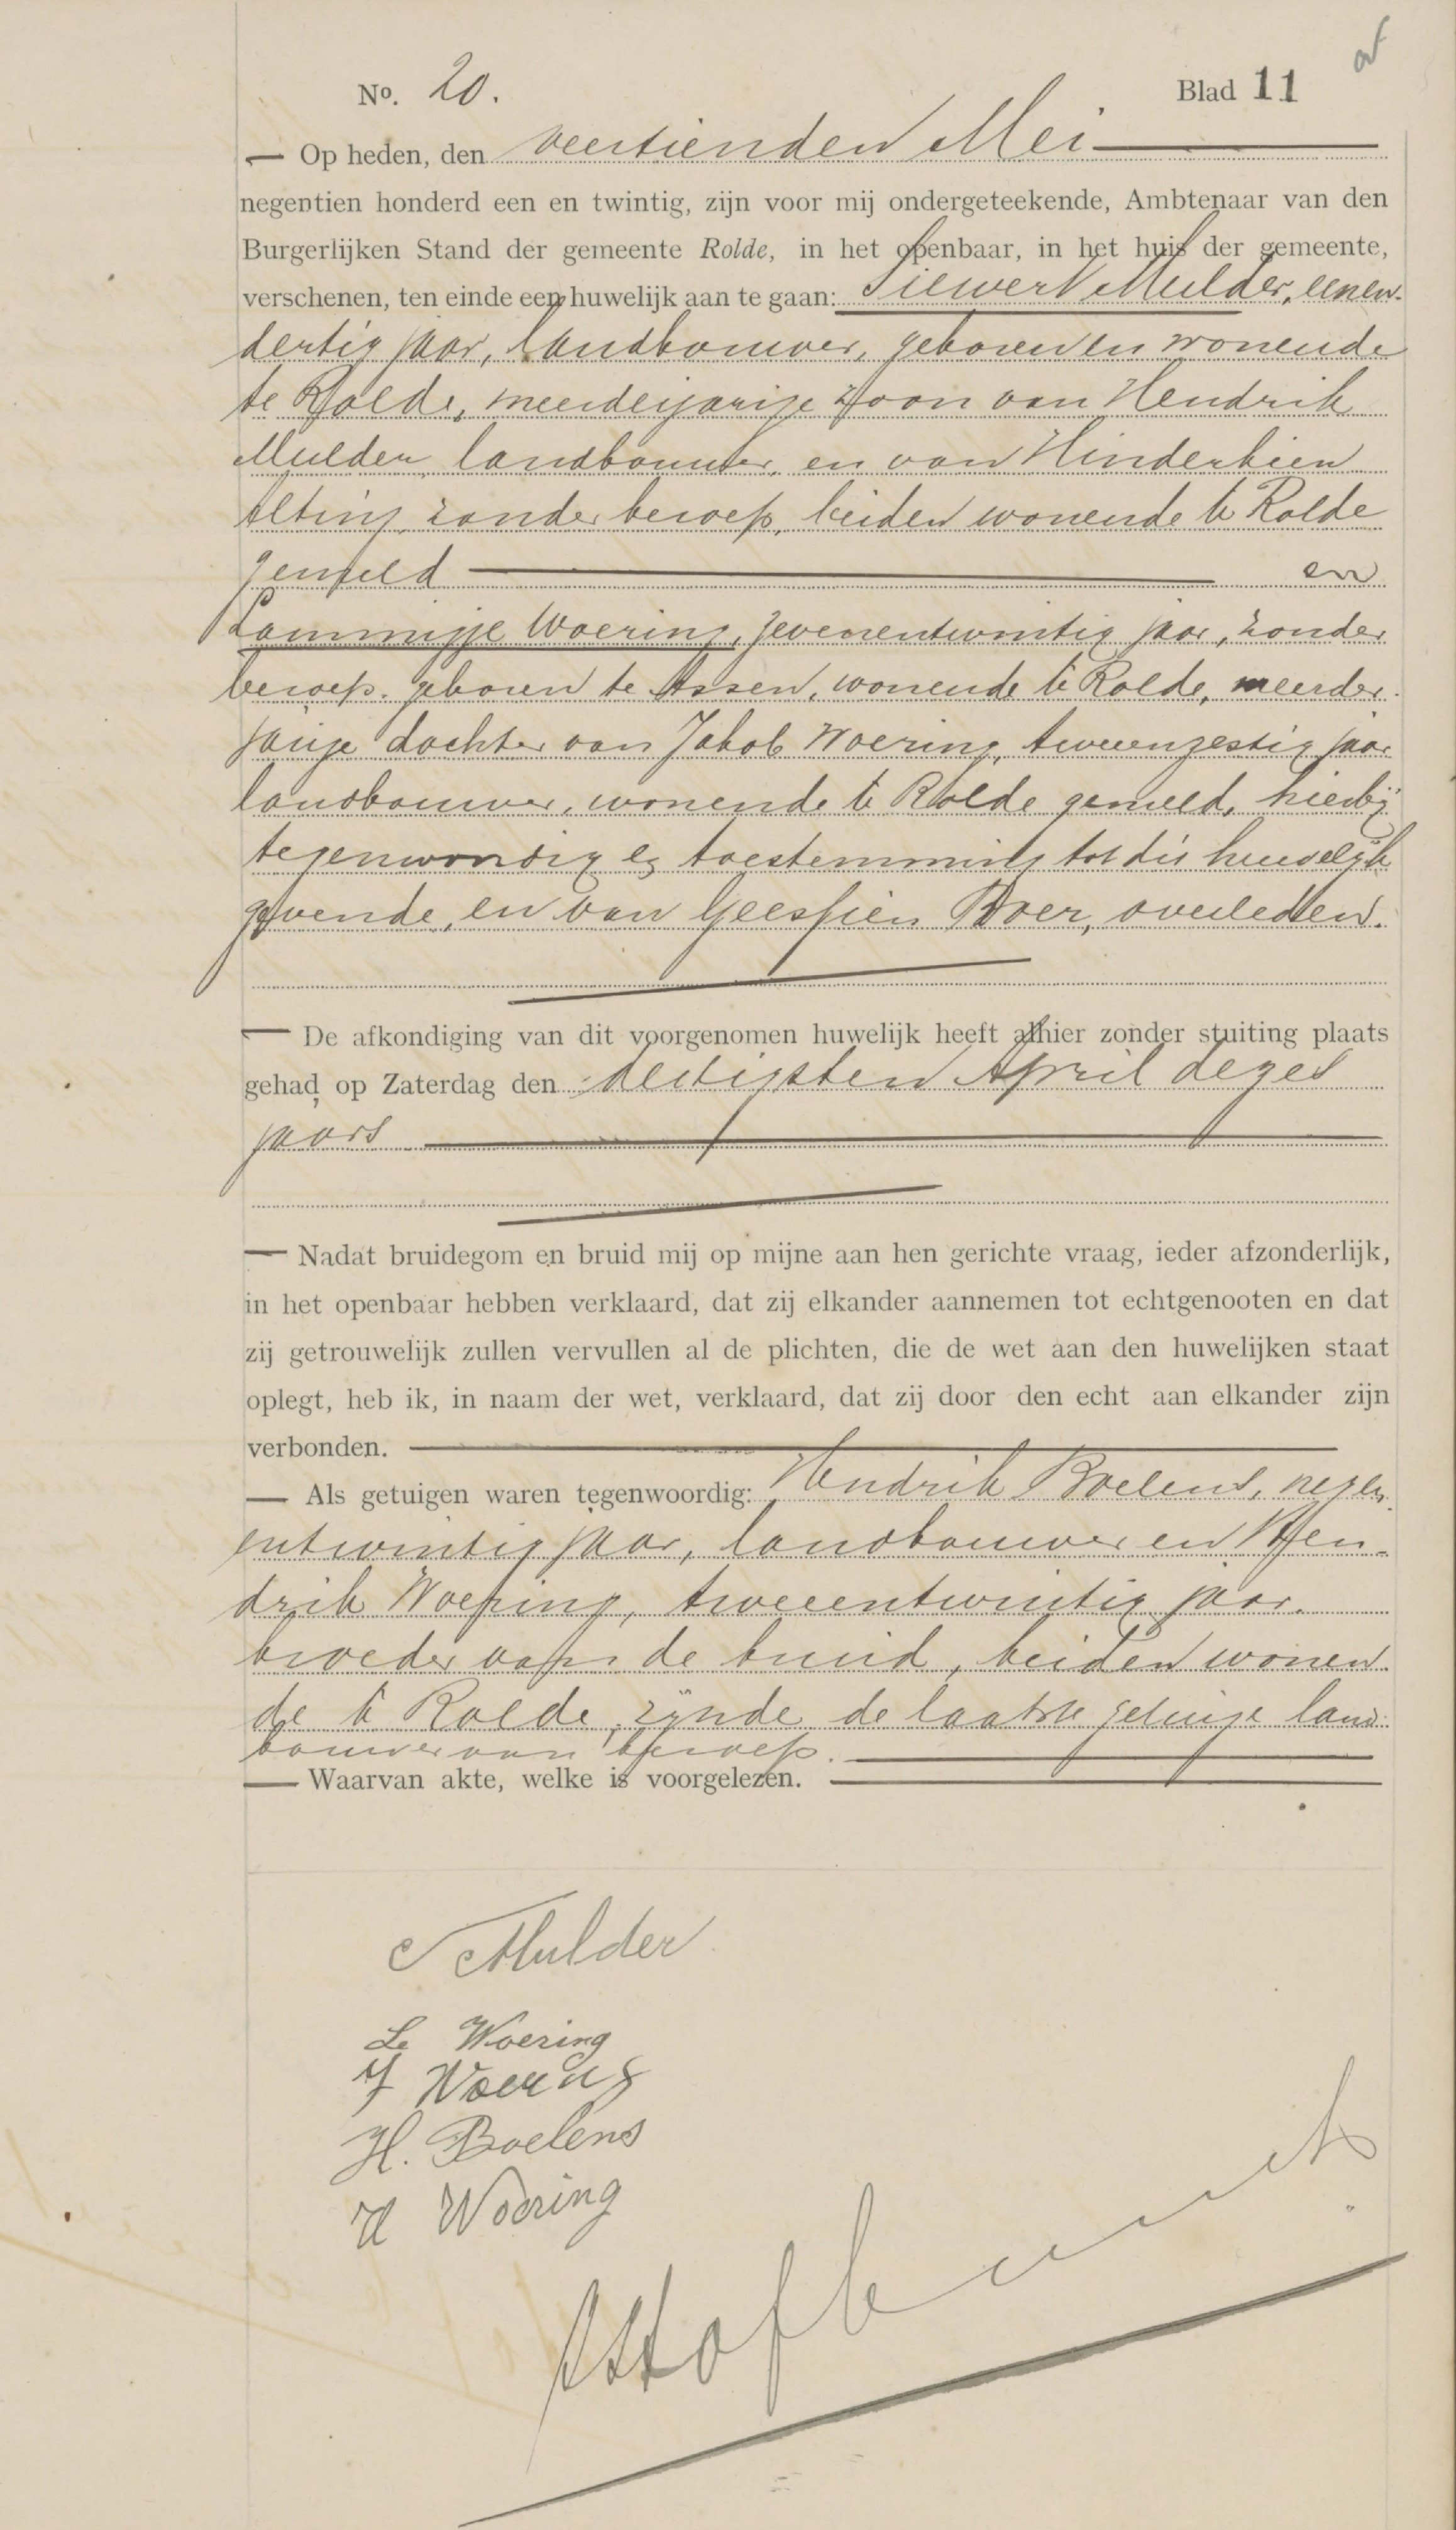 No. 20. Blad 11
— Op heden, den veertienden Mei
negentien honderd een en twintig, zijn voor mij ondergeteekende, Ambtenaar van den
Burgerlijken Stand der gemeente Rolde, in het openbaar, in het huis der gemeente,
verschenen, ten einde een huwelijk aan te gaan: Siewert Mulder, eenen-
dertig jaar, landbouwer, geboren en wonende
te Rolde, meerderjarige zoon van Hendrik
Mulder, landbouwer, en van Hinderkien
Alting, zonder beroep, beiden wonende te Rolde
gemeld en
Lammigje Woering, zevenentwintig jaar, zonder
beroep, geboren te Assen, wonende te Rolde, meerder-
jarige dochter van Jakob Woering, tweeenzestig jaar
landbouwer, wonende te Rolde gemeld, hierbij
tegenwoordig en toestemming tot dit huwelijk
gevende, en van Geessien Boer, overleden.
— De afkondiging van dit voorgenomen huwelijk heeft alhier zonder stuiting plaats
gehad op Zaterdag den dertigsten April dezes
jaars
— Nadat bruidegom en bruid mij op mijne aan hen gerichte vraag, ieder afzonderlijk,
in het openbaar hebben verklaard, dat zij elkander aannemen tot echtgenooten en dat
zij getrouwelijk zullen vervullen al de plichten, die de wet aan den huwelijken staat
oplegt, heb ik, in naam der wet, verklaard, dat zij door den echt aan elkander zijn
verbonden.
— Als getuigen waren tegenwoordig: Hendrik Boelens, negen-
entwintig jaar, landbouwer en Hen-
drik Woering, tweeentwintig jaar,
broeder van de bruid, beiden wonen-
de te Rolde, zijnde de laatste getuige land-
bouwer van beroep.
— Waarvan akte, welke is voorgelezen.
S Mulder
L. Woering
J Woering
H. Boelens
H Woering